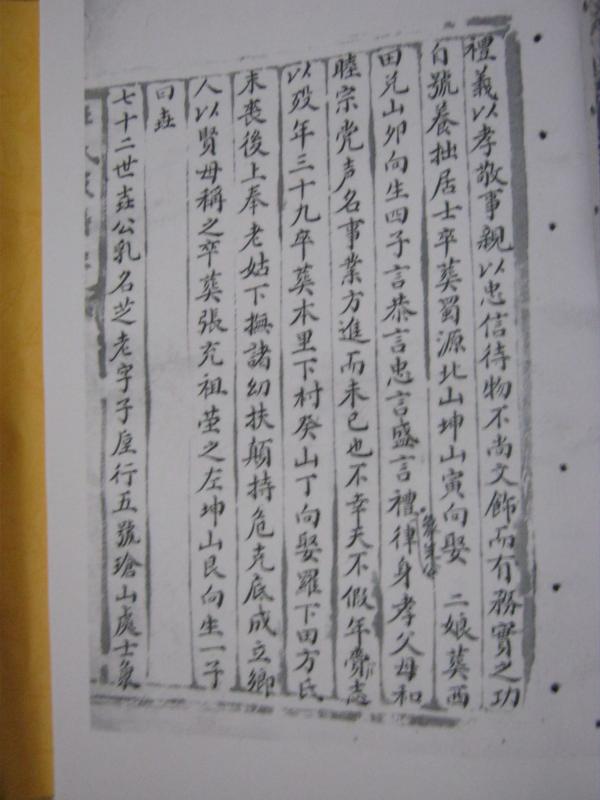 禮義以孝敬事親以忠信待物不尚文飾而有務實之功
自號養拙居士卒葬蜀源北山坤山寅向娶 二娘葬西
田兄山卯向生四子言恭言忠言盛言禮律身孝父母和
睦宗党声名事業方進而未已也不幸天不假年賫志
以歿年三十九卒葬本里下村癸山丁向娶羅下田方氏
末喪後上奉老姑下撫諸幼扶顛持危克底成立鄉
人以賢母稱之卒葬張充祖茔之左坤山艮向生一子
曰垚
七十二世垚公乳名芝老字子厚行五號瑲山處士氣